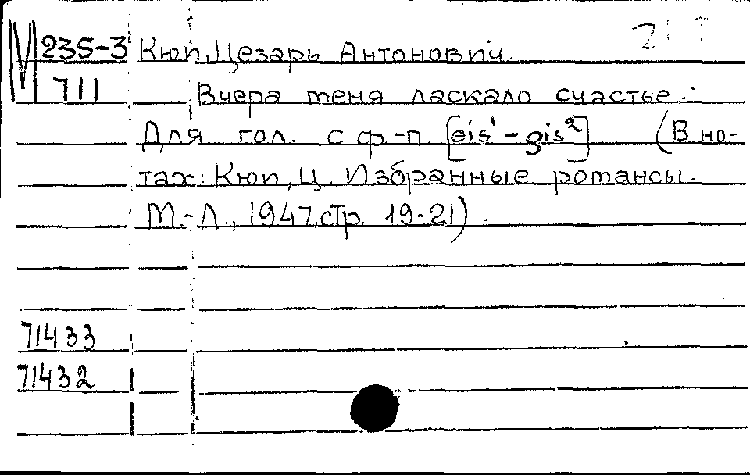 М 235-3 Кюи, Цезарь Антонович.
711 Вчера меня ласкало счастье.
Для гол. с ф-п. [eis¹-gis²] (В но-
тах: Кюи, Ц. Избранные романсы.
М.-Л., 1947, стр. 19-21).
71433
71432